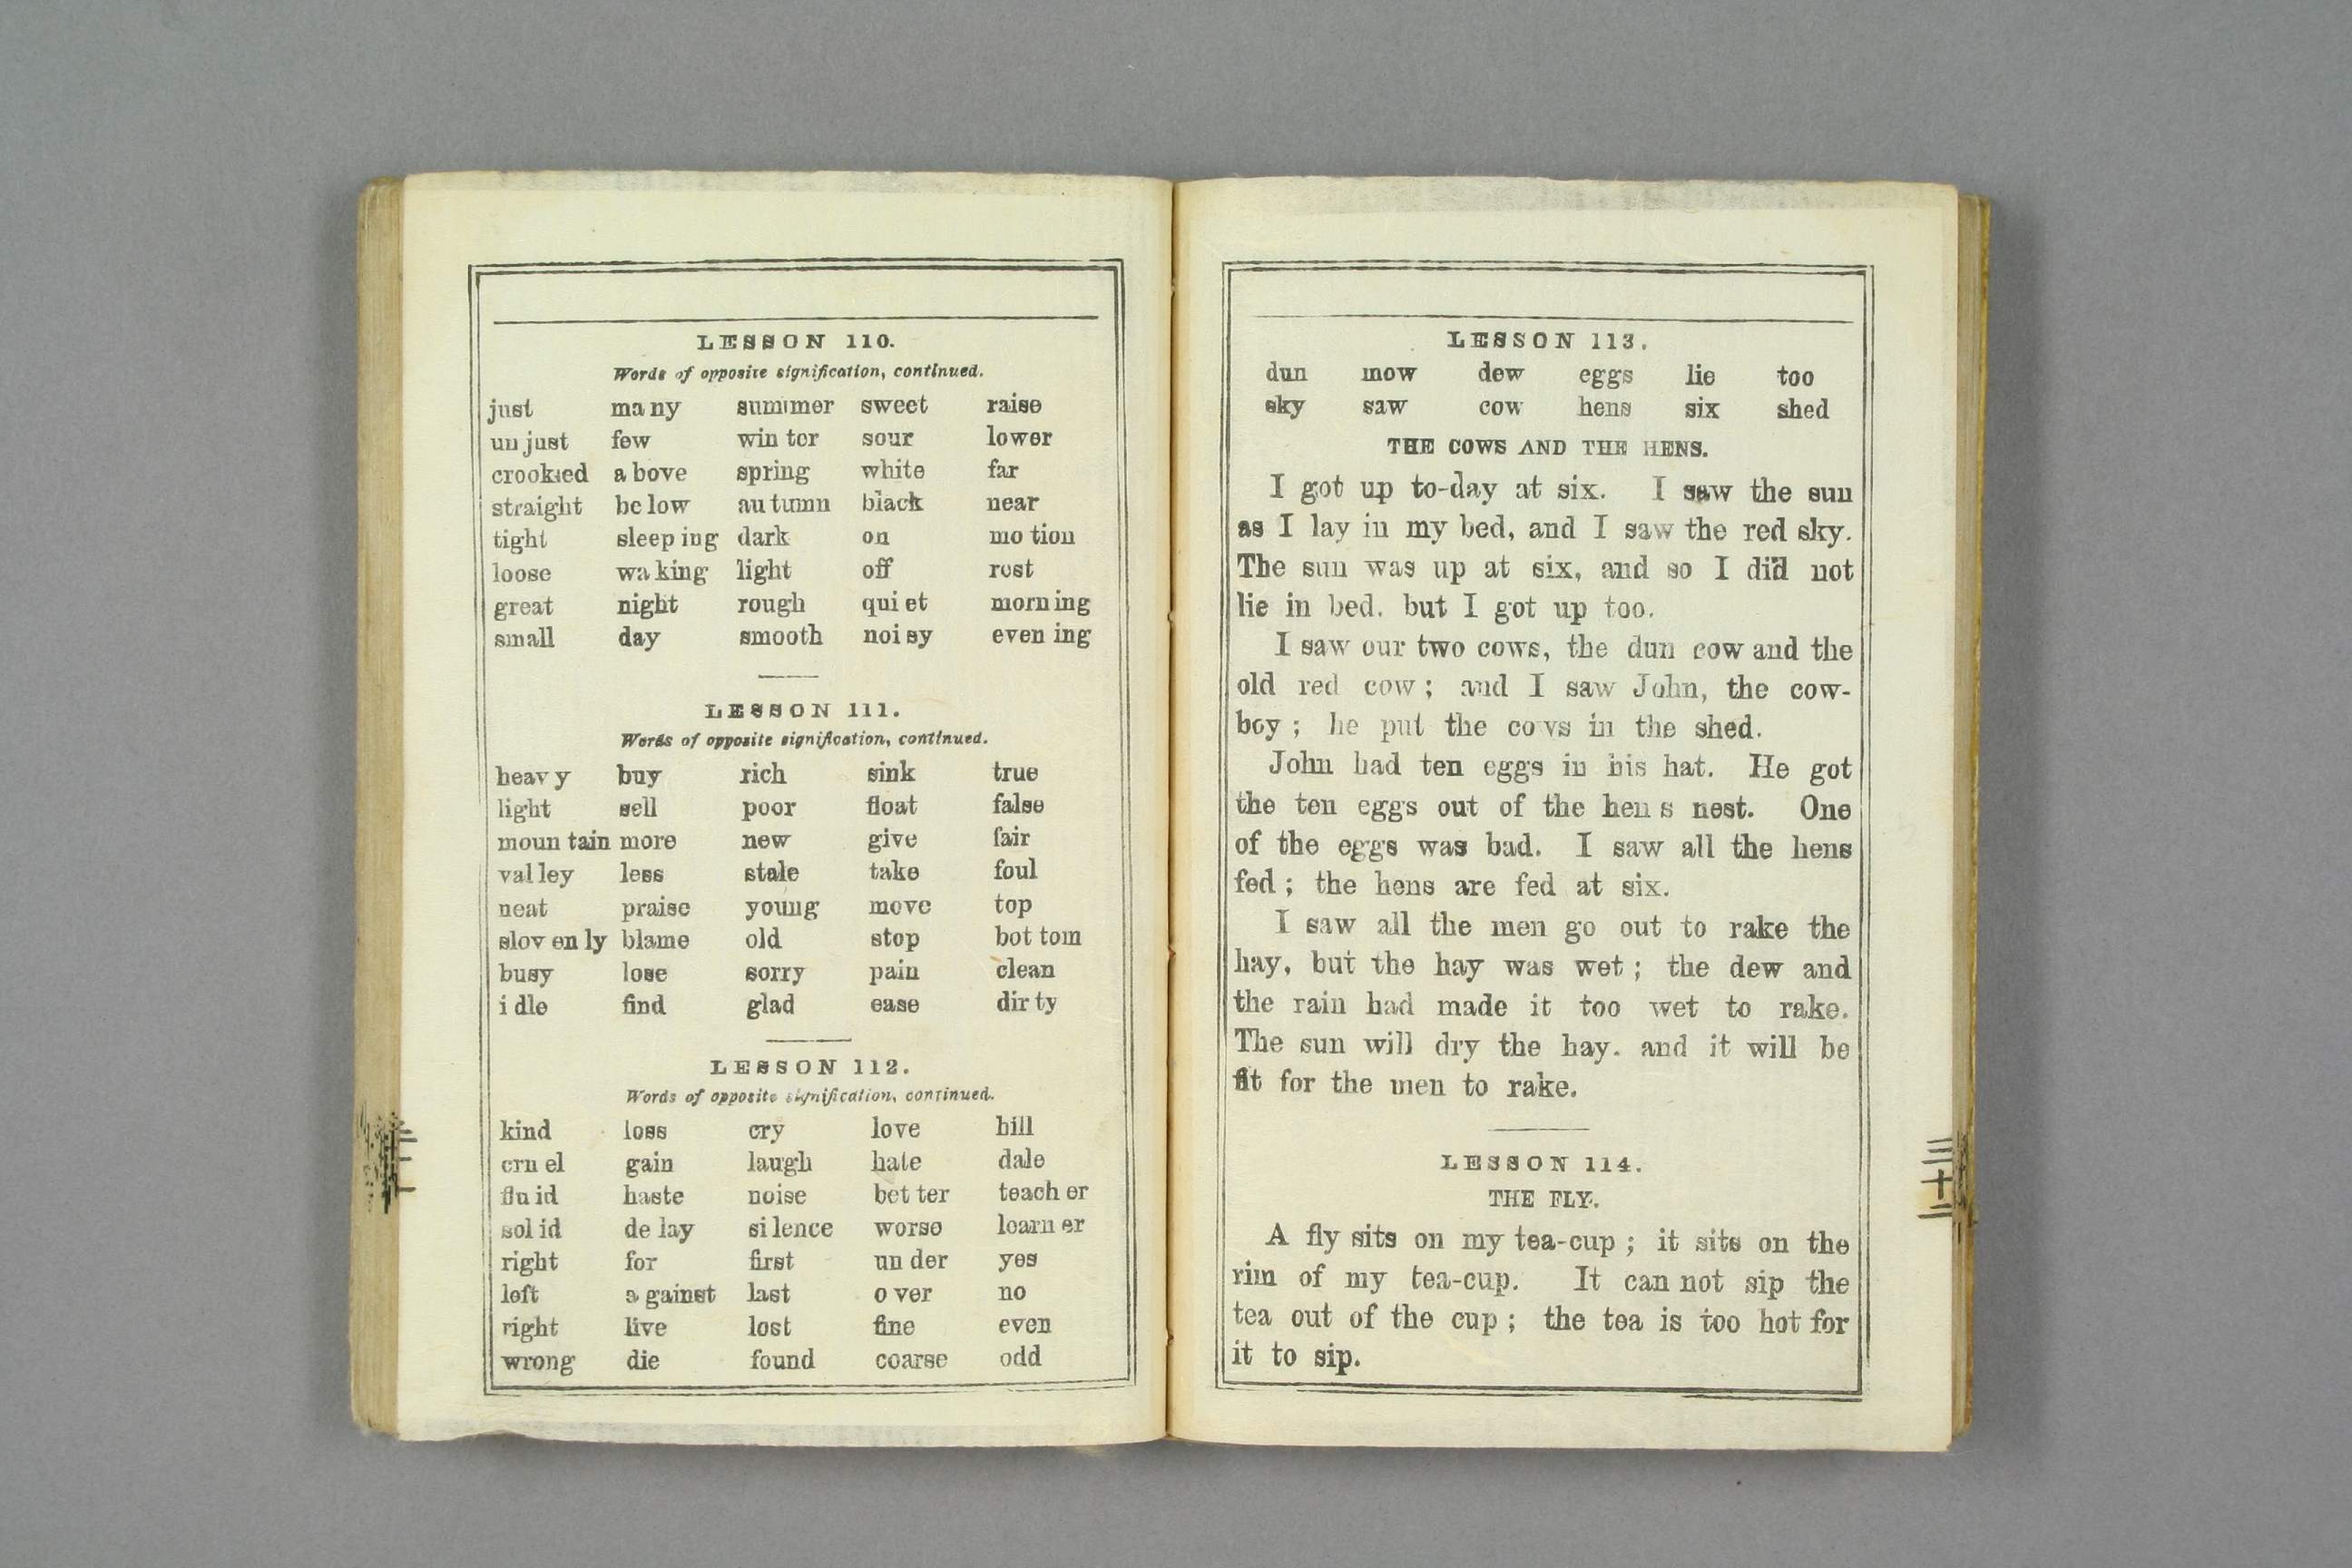 LESSON 110.
Words of opposite signification, continued.
just many summer sweet raise
un just few win ter sour lower
crooked a bove spring white far
straight be low au tumn black near
tight sleep ing dark on mo tion
loose wa king light off rest
great night rough qui et morn ing
small day smooth noi sy even ing
LESSON 111.
Words of opposite signification, continued.
heav y buy rich sink true
light sell poor float false
moun tain more new give fair
val ley less stale take foul
neat praise young move top
slov en ly blame old stop bot tom
busy lose sorry pain clean
i dle find glad ease dir ty
LESSON 112.
Words of opposite signification, continued.
kind loss cry love hill
cru el gain laugh hate dale
flu id haste noise bet ter teach er
sol id de lay si lence worse learn er
right for first un der yes
left a gainst last o ver no
right live lost fine even
wrong die found coarse odd
LESSON 113.
dun mow dew eggs lie too
sky saw cow hens six shed
THE COWS AND THE HENS.
I got up to-day at six. I saw the sun
as I lay in my bed, and I saw the red sky.
The sun was up at six, and so I did not
lie in bed. but I got up too.
I saw our two cows, the dun cow and the
old red cow; and I saw John, the cow-
boy; he put the cows in the shed.
John had ten eggs in his hat. He got
the ten eggs out of the hen s nest. One
of the eggs was bad. I saw all the hens
fed; the hens are fed at six.
I saw all the men go out to rake the
hay, but the hay was wet; the dew and
the rain had made it too wet to rake.
The sun will dry the hay. and it will be
fit for the men to rake.
LESSON 114.
THE FLY.
A fly sits on my tea-cup; it sits on the
rim of my tea-cup. It can not sip the
tea out of the cup; the tea is too hot for
it to sip.